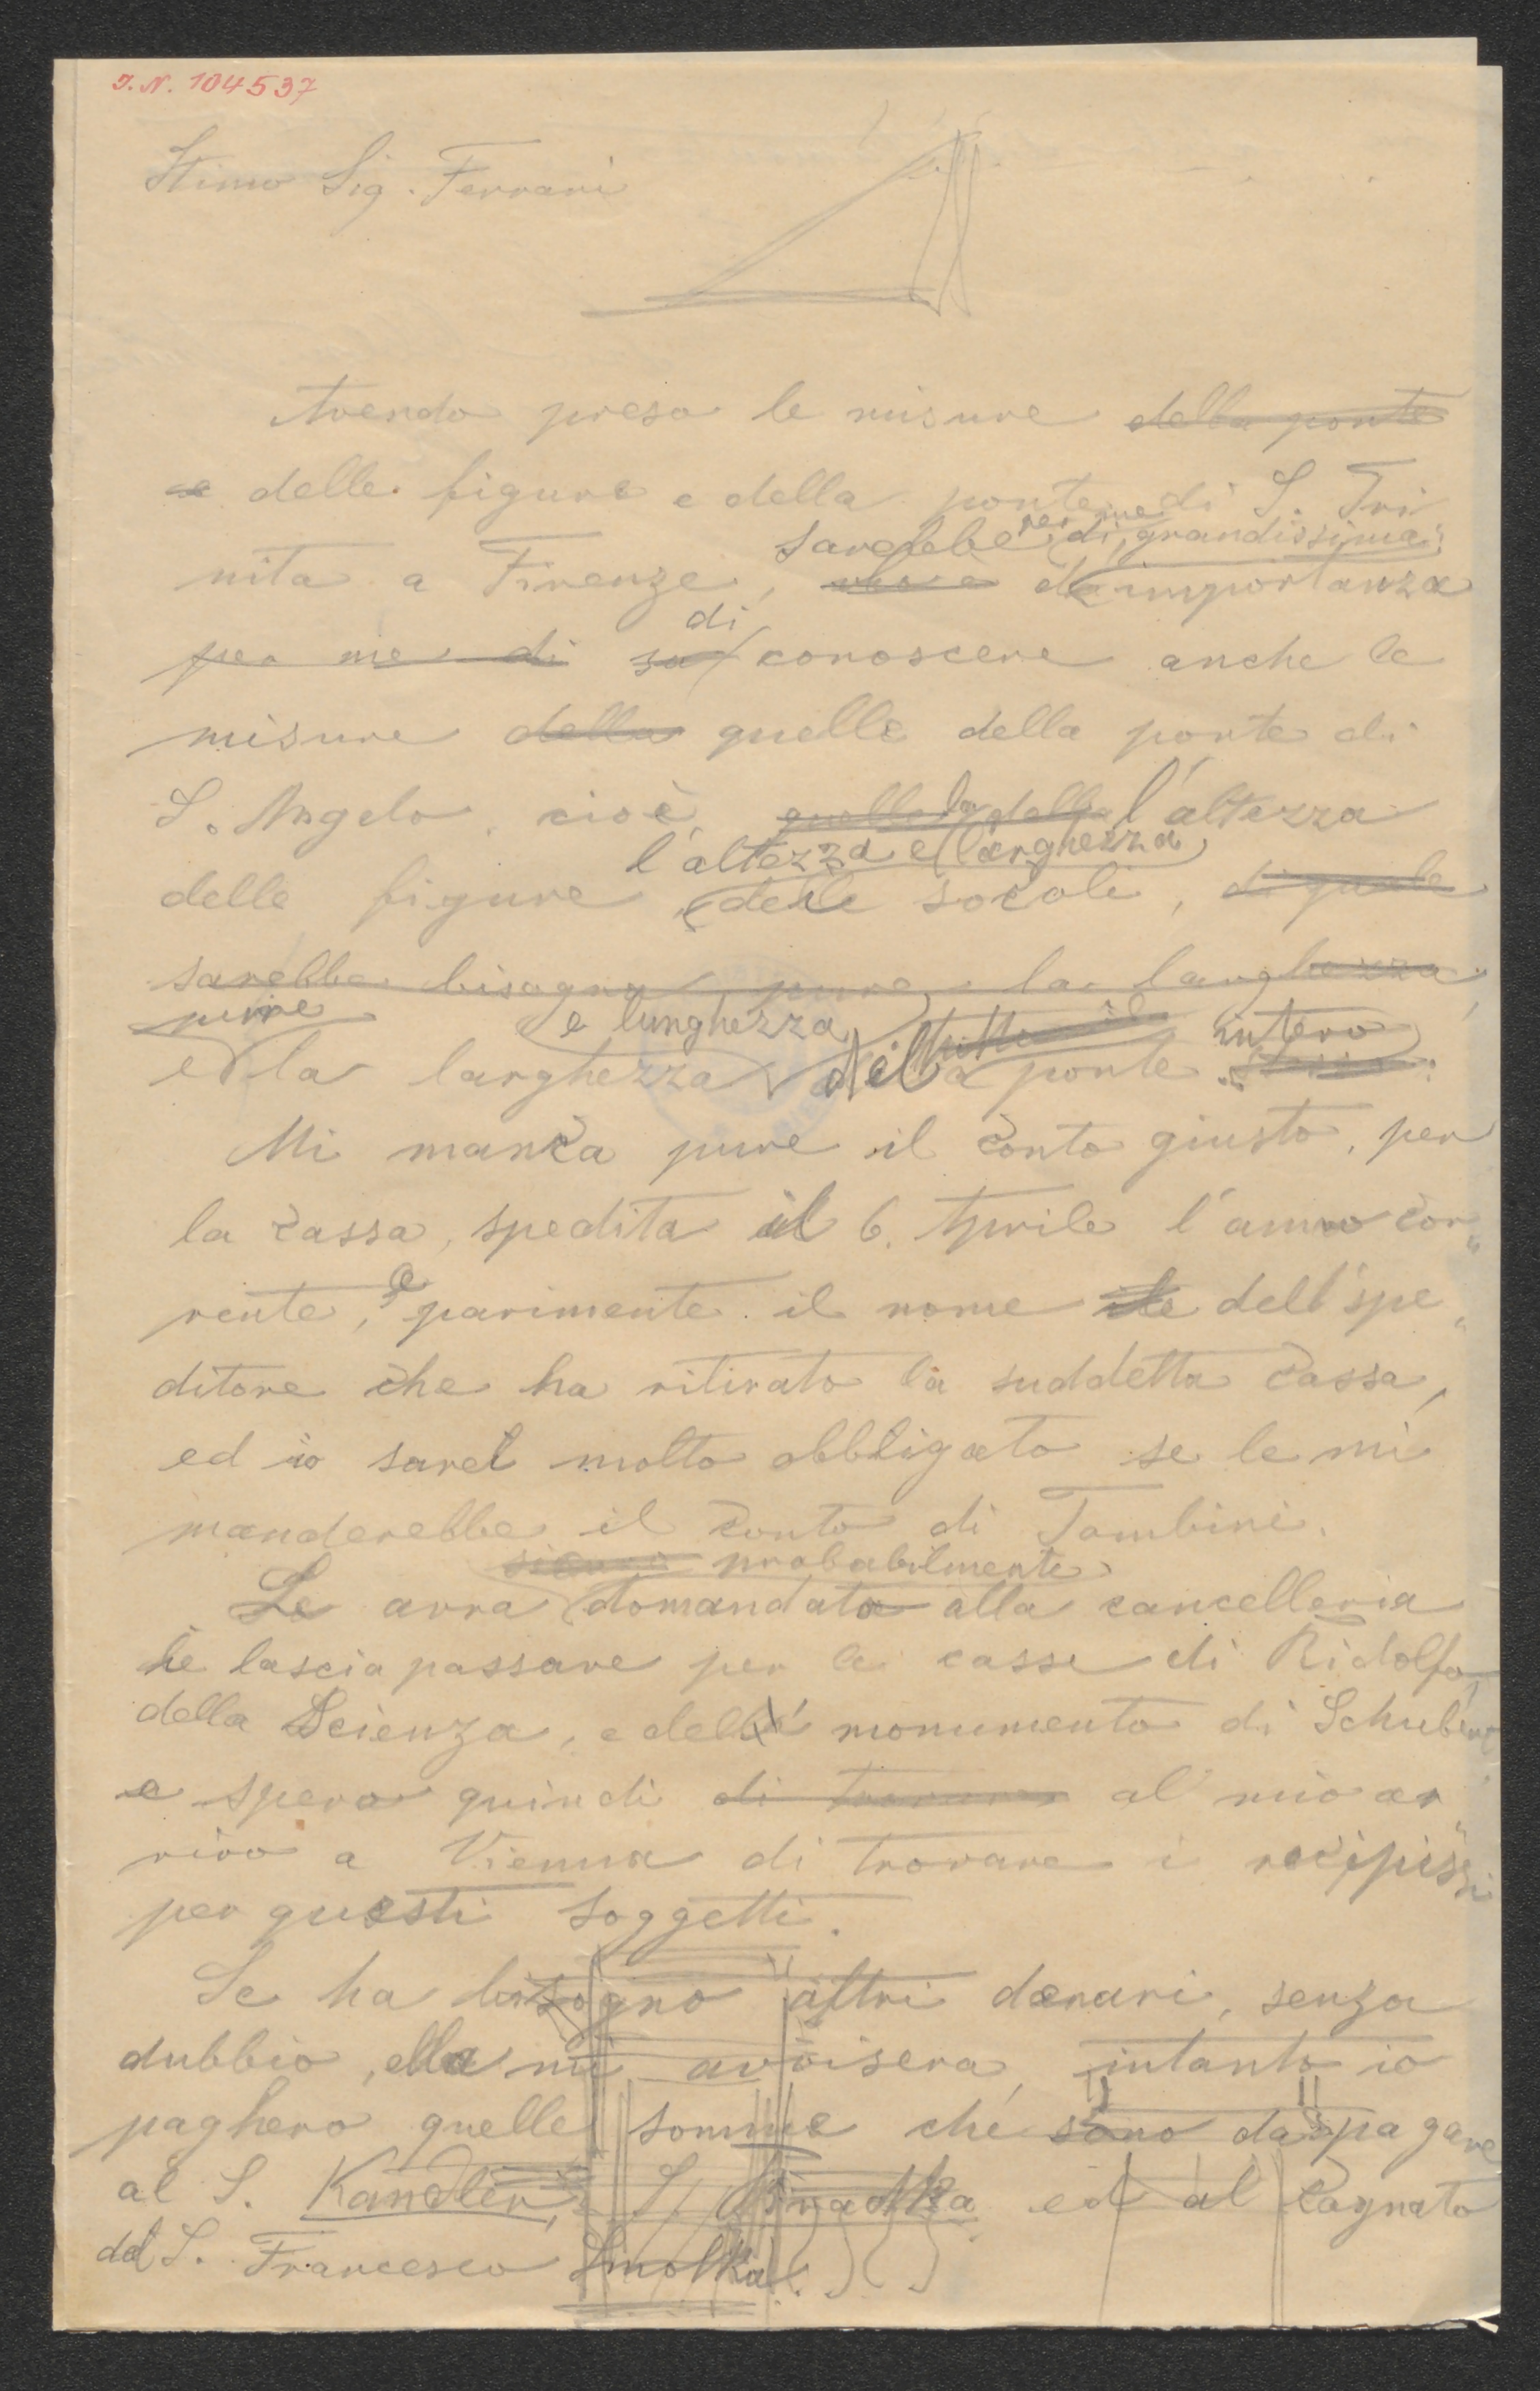 I.N. 104537
Stimo Sig. Ferrari
Avendo preso le misure della ponte
e delle figure e della ponte di S. Tri
sarebbe per me di grandissima
nita a Firenze, importanza
di
per me di sa conoscere anche le
misure della quelle della ponte di
S. Angelo, cioè l'altezza
l'altezza e larghezza
delle figure, delle socoli, di quale
sarebbe bisogno pure la larghezza
pure e lunghezza tutto il intero
e la larghezza della ponte
Mi manca pure il conto giusto, per
la cassa, spedita il 6. Aprile l'anno cor„
rente, e parimente il nome dell'spe„
ditore che ha ritirato la suddetta cassa,
ed io sarei molto obbligato se le mi
manderebbe il conto di Tombini.
probabilmente
Le avra domandato alla cancelleria
le lascia passare per le casse di Ridolfo,
della Scienza, e dell' monumento di Schubert
e spero quindi di trovare al mio ar„
rivo a Vienna di trovare i recipissi
per questi soggetti.
Se ha bisogno altri denari, senza
dubbio, ella mi avvisera, intanto io
paghero quelle somme che sono da pagare
al S. Kandler, S. ed al Cognato
del S. Francesco Smolka.